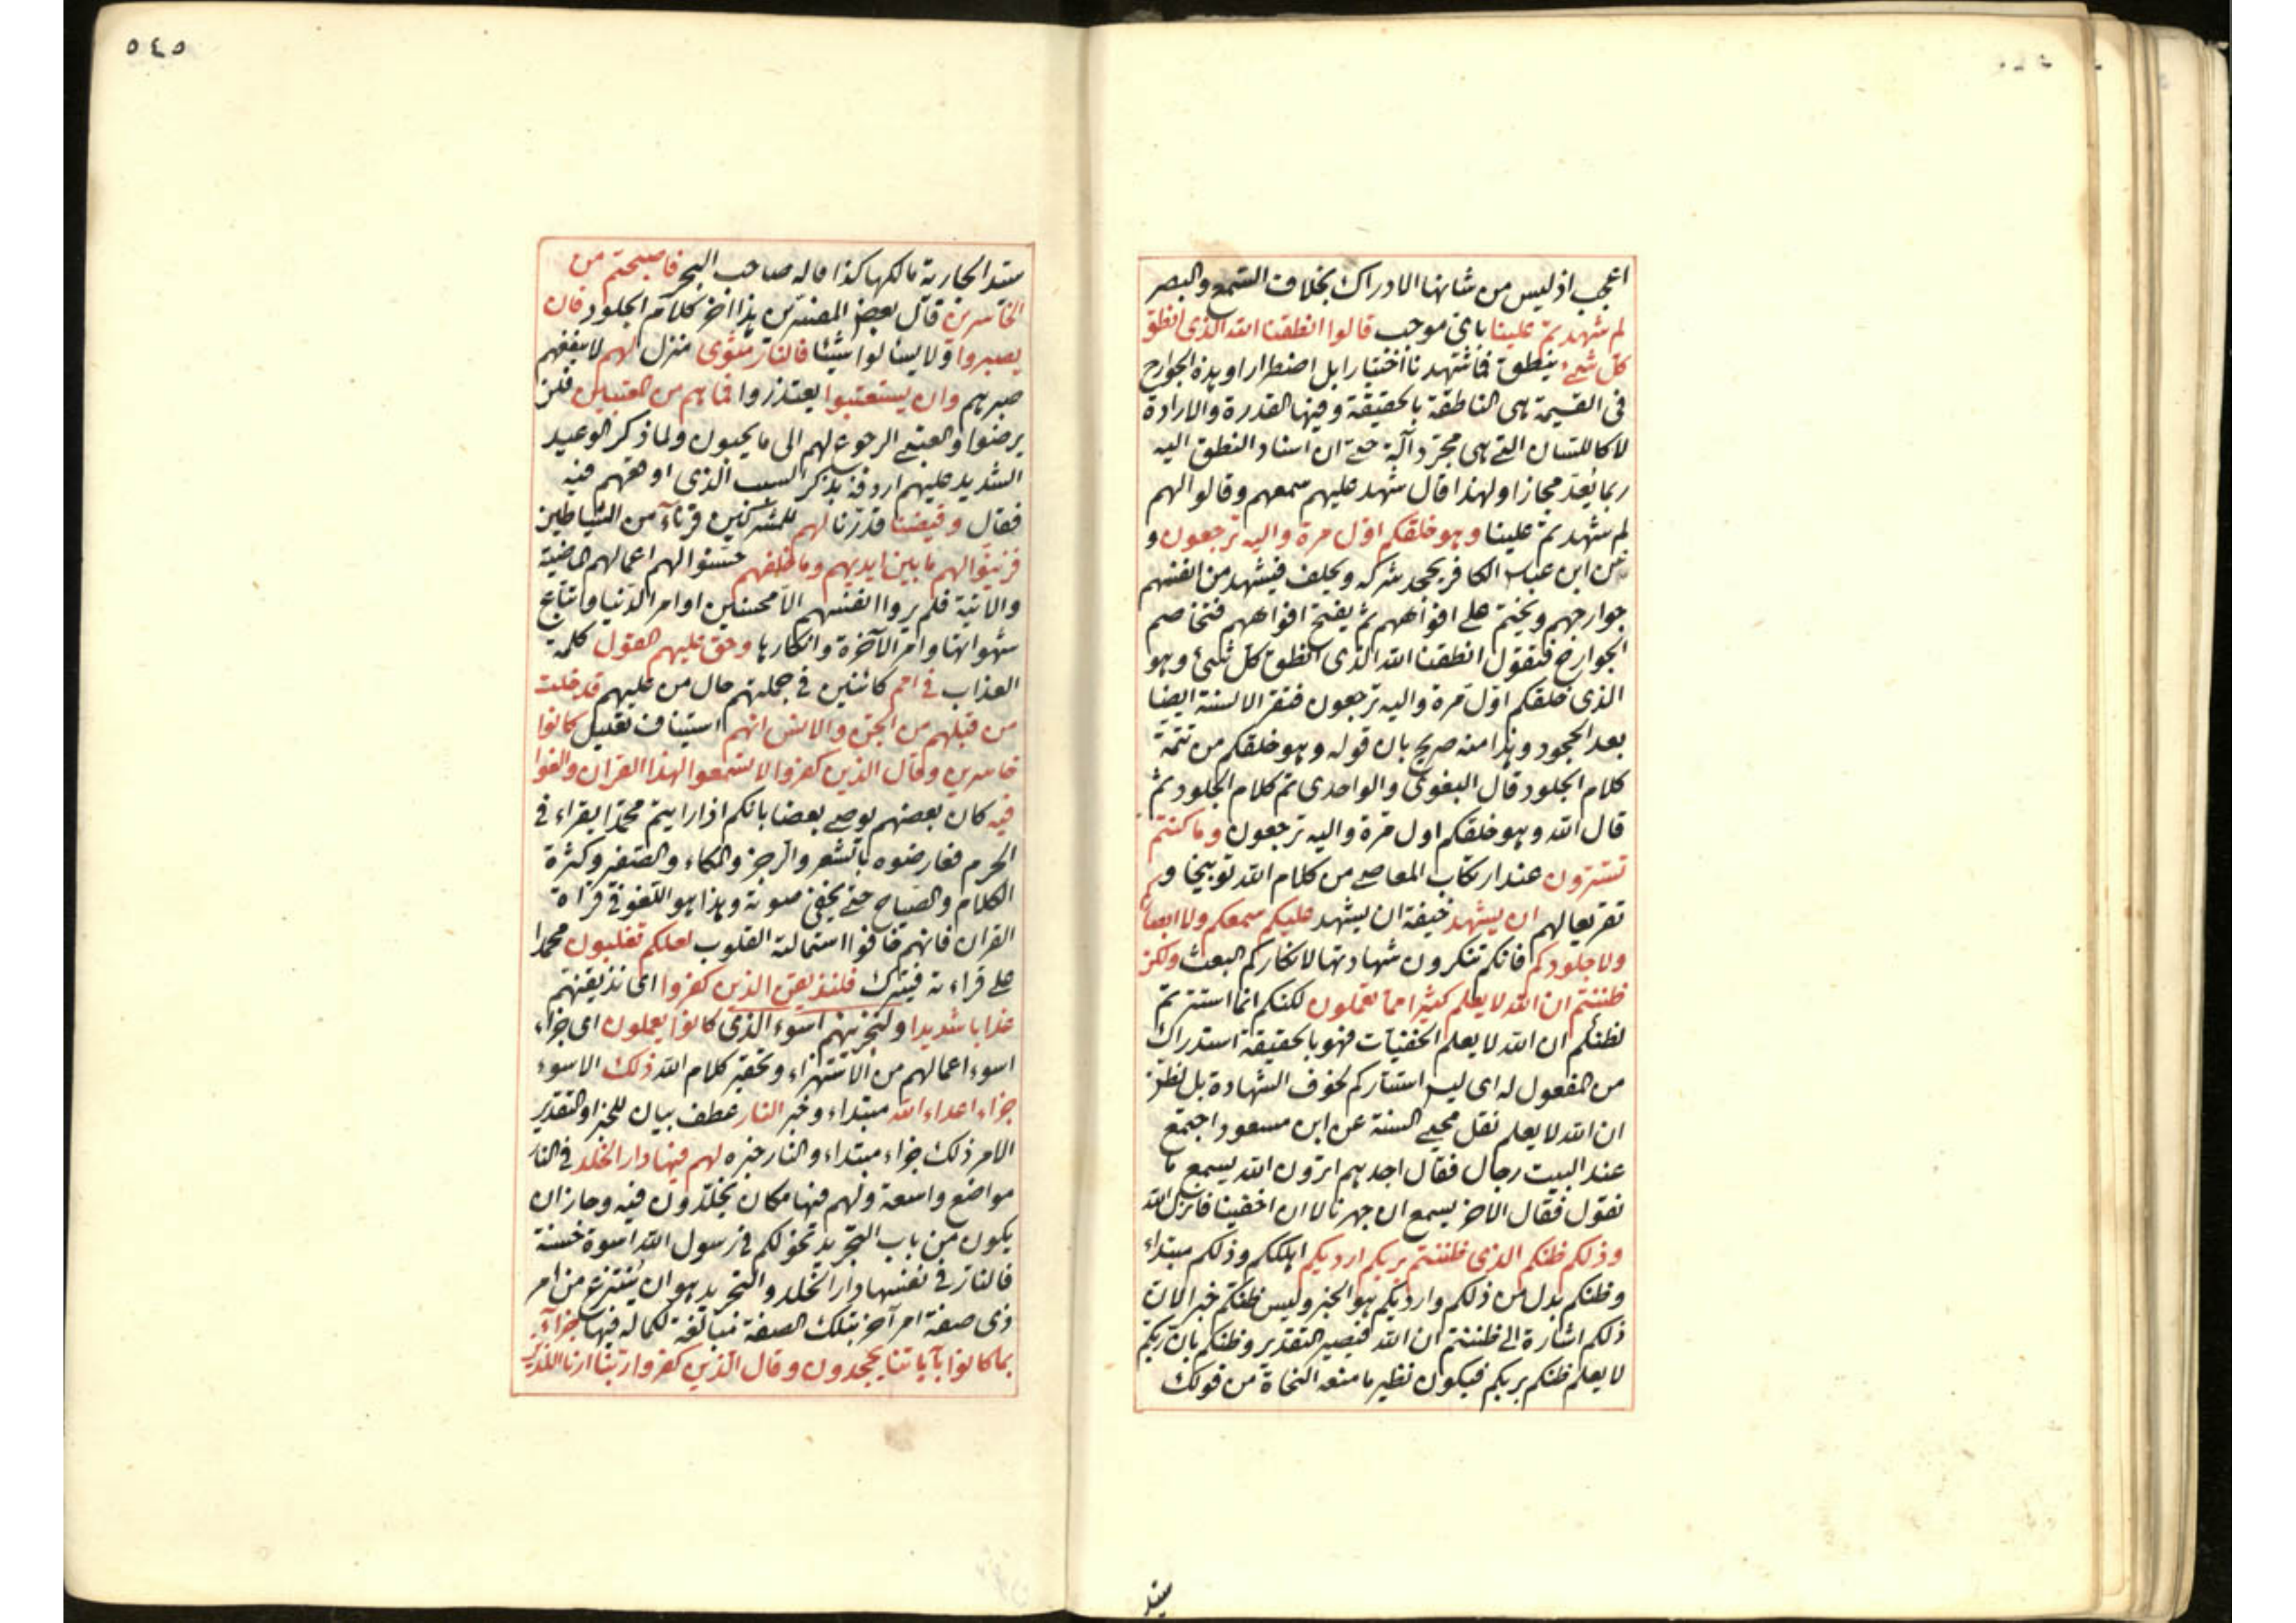 اعجب اذ ليس من شانها الادراك بخلاف السمع والبصر
لم شهدتم علينا باى موجب قالوا انطقنا الله الذى انطق
كل شئ ينطق فما شهدنا اختيارا بل اضطرارا وهذه الجوارح
فى القيمة هى الناطقة بالحقيقة وفيها القدرة والارادة
لا كاللسان التى هى مجرد آلة حتى ان اسناد النطق اليه
ربما يُعَدّ مجازا ولهذا قال شهد عليهم سمعهم وقالوا لهم
لم شهدتم علينا وهو خلقكم اوّل مرة واليه ترجعون و
عن ابن عباس الكافر يجحد شركه ويحلف فيشهد من انفسهم
جوارحهم ويختم على افواههم ثم يفتح افواههم فتخاصم
الجوارح فتقول انطقنا الله الذى انطق كل شئ وهو
الذى خلقكم اوّل مرة واليه ترجعون فتقر الالسنة ايضا
بعد الجحود وهذا منه صريح بان قوله وهو خلقكم من تتمة
كلام الجلود قال البغوى والواحدى تم كلام الجلود ثم
قال الله وهو خلقكم اول مرة واليه ترجعون وما كنتم
تستترون عند ارتكاب المعاصى من كلام الله توبيخا و
تقريعا لهم ان يشهد خيفة ان يشهد عليكم سمعكم ولا ابصاركم
ولا جلودكم فانكم تنكرون شهادتها لانكاركم البعث ولكن
ظننتم ان الله لا يعلم كثيرا مما تعملون لكنكم انما استترتم
لظنكم ان الله لا يعلم الخفيات فهو بالحقيقة استدراك
من المفعول له اى ليس استتاركم لخوف الشهادة بل لظن
ان الله لا يعلم نقل محيى السنة عن ابن مسعود اجتمع
عند البيت رجال فقال احدهم اترون الله يسمع ما
نقول فقال الاخر يسمع ان جهرنا لا ان اخفينا فانزل الله
وذلكم ظنكم الذى ظننتم بربكم ارديكم اهلككم وذلكم مبتداء
وظنكم بدل من ذلكم وارديكم هو الخبر وليس ظنكم خبرا لان
ذلكم اشارة الى ظننتم ان الله فيصير التقدير وظنكم بان ربكم
لا يعلم ظنكم بربكم فيكون نظير ما منعه النحاة من قولك
سيد
٥٤٥
سيد الجارية مالكها كذا قاله صاحب البحر فاصبحتم من
الخاسرين قال بعض المفسرين هذا آخر كلام الجلود فان
يصبروا ولا يسالوا شيئا فالنار مثوى منزل لهم لا ينفعهم
صبرهم وان يستعتبوا يعتذروا فما هم من المعتبين فلن
يرضوا والعتبى الرجوع لهم الى ما يحبون ولما ذكر الوعيد
الشديد عليهم اردفه بذكر السبب الذى اوقعهم فيه
فقال وقيضنا قدّرنا لهم للمشركين قرناء من الشياطين
فزينوا لهم ما بين ايديهم وما خلفهم حسّنوا لهم اعمالهم الماضية
والاتية فلم يروا انفسهم الا محسنين او امر الدنيا واتباع
شهواتها وامر الآخرة وانكارها وحق عليهم القول كلمة
العذاب فى امم كائنين فى جملتهم حال من عليهم قد خلت
من قبلهم من الجن والانس انهم استيناف تعليل كانوا
خاسرين وقال الذين كفروا لا تسمعوا لهذا القران والغوا
فيه كان بعضهم يوصى بعضا بانكم اذا رايتم محمدا يقراء فى
الحرم فعارضوه بالشعر والرجز والمكاء والصفير وكثرة
الكلام والصياح حتى يخفى صوته وهذا هو اللغو فى قراءة
القران فانهم خافوا استمالته القلوب لعلكم تغلبون محمدا
على قراءته فيترك فلنذيقن الذين كفروا اى نذيقنهم
عذابا شديدا ولنجزينهم اسوء الذى كانوا يعملون اى جزاء
اسوء اعمالهم من الاستهزاء وتحقير كلام الله ذلك الاسوء
جزاء اعداء الله مبتداء وخبر النار عطف بيان للجزاء والتقدير
الامر ذلك جزاء مبتداء والنار خبره لهم فيها دار الخلد فى النار
مواضع واسعة ولهم فيها مكان يخلدون فيه وجاز ان
يكون من باب التجريد نحو لكم فى رسول الله اسوة حسنة
فالنار فى نفسها دار الخلد والتجريد هو ان ينتزع من امر
ذى صفة امر آخر بتلك الصفة مبالغة لكماله فيها جزاء
بما كانوا بآياتنا يجحدون وقال الذين كفروا ربنا ارنا اللذين